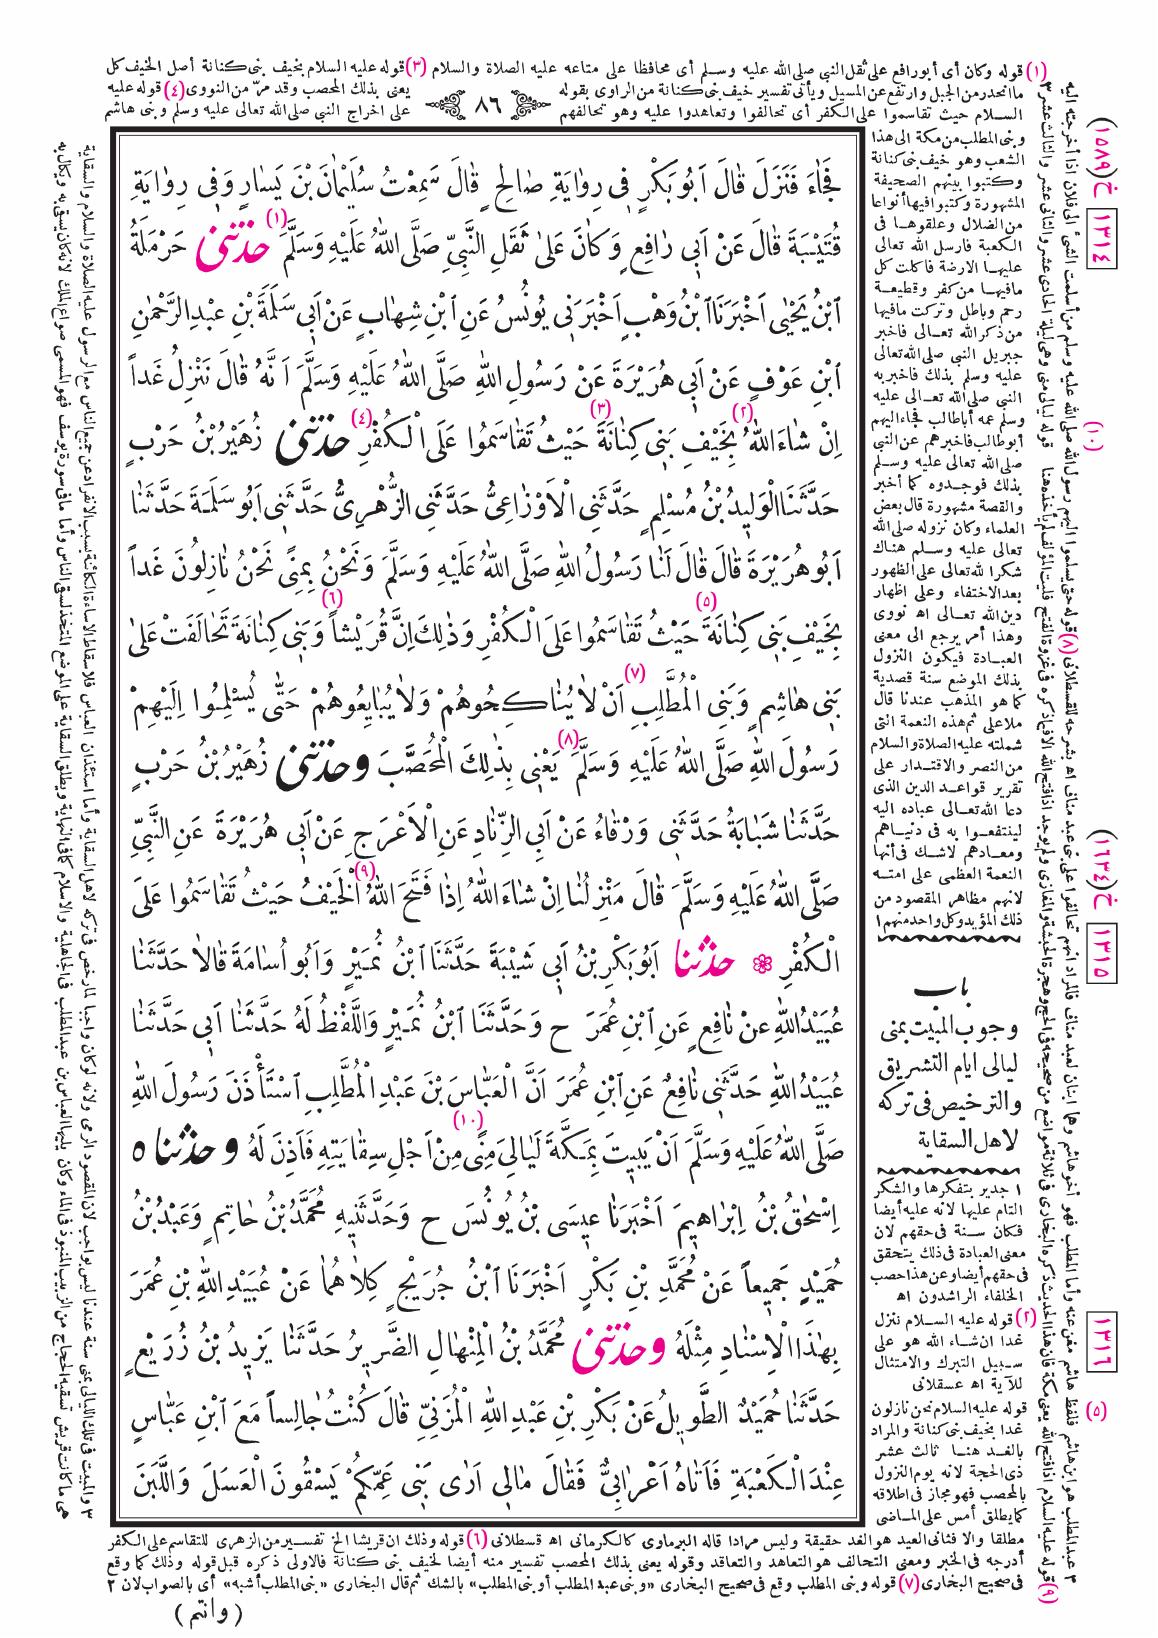 (١) قوله وكان أى أبورافع على ثقل النبي صلى الله عليه وسلم أى محافظا على متاعه عليه الصلاة والسلام (٣) قوله عليه السلام بخيف بنى كنانة أصل الخيف كل
ماانحدر من الجبل وارتفع عن المسيل ويأتى تفسير خيف بنى كنانة من الراوى بقوله يعنى بذلك المحصب وقد مرّ من النووى (٤) قوله عليه
السلام حيث تقاسموا على الكفر أى تحالفوا وتعاهدوا عليه وهو تحالفهم على اخراج النبي صلى الله تعالى عليه وسلم وبنى هاشم
٨٦
فَجَاءَ فَنَزَلَ قَالَ اَبُو بَكْرٍ فِى رِوَايَةِ صَالِحٍ قَالَ سَمِعْتُ سُلَيْمَانَ بْنَ يَسَارٍ وَفِى رِوَايَةِ
قُتَيْبَةَ قَالَ عَنْ اَبِى رَافِعٍ وَكَانَ عَلىٰ ثَقَلِ النَّبِىِّ صَلَّى اللّٰهُ عَلَيْهِ وَسَلَّمَ (١) حَدَّثَنِى حَرْمَلَةُ
ابْنُ يَحْيٰى اَخْبَرَنَا ابْنُ وَهْبٍ اَخْبَرَنِى يُونُسُ عَنِ ابْنِ شِهَابٍ عَنْ اَبِى سَلَمَةَ بْنِ عَبْدِ الرَّحْمٰنِ
ابْنِ عَوْفٍ عَنْ اَبِى هُرَيْرَةَ عَنْ رَسُولِ اللّٰهِ صَلَّى اللّٰهُ عَلَيْهِ وَسَلَّمَ اَنَّهُ قَالَ نَنْزِلُ غَداً
اِنْ شَاءَ اللّٰهُ (٢) بِخَيْفِ بَنِى كِنَانَةَ (٣) حَيْثُ تَقَاسَمُوا عَلَى الْكُفْرِ (٤) حَدَّثَنِى زُهَيْرُ بْنُ حَرْبٍ
حَدَّثَنَا الْوَلِيدُ بْنُ مُسْلِمٍ حَدَّثَنِى الْاَوْزَاعِىُّ حَدَّثَنِى الزُّهْرِىُّ حَدَّثَنِى اَبُو سَلَمَةَ حَدَّثَنَا
اَبُو هُرَيْرَةَ قَالَ قَالَ لَنَا رَسُولُ اللّٰهِ صَلَّى اللّٰهُ عَلَيْهِ وَسَلَّمَ وَنَحْنُ بِمِنًى نَحْنُ نَازِلُونَ غَداً
بِخَيْفِ بَنِى كِنَانَةَ (٥) حَيْثُ تَقَاسَمُوا عَلَى الْكُفْرِ وَذٰلِكَ اِنَّ قُرَيْشاً (٦) وَبَنِى كِنَانَةَ تَحَالَفَتْ عَلىٰ
بَنِى هَاشِمٍ وَبَنِى الْمُطَّلِبِ (٧) اَنْ لَا يُنَاكِحُوهُمْ وَلَا يُبَايِعُوهُمْ حَتّٰى يُسْلِمُوا اِلَيْهِمْ
رَسُولَ اللّٰهِ صَلَّى اللّٰهُ عَلَيْهِ وَسَلَّمَ (٨) يَعْنِى بِذٰلِكَ الْمُحَصَّبَ وَحَدَّثَنِى زُهَيْرُ بْنُ حَرْبٍ
حَدَّثَنَا شَبَابَةُ حَدَّثَنِى وَرْقَاءُ عَنْ اَبِى الزِّنَادِ عَنِ الْاَعْرَجِ عَنْ اَبِى هُرَيْرَةَ عَنِ النَّبِىِّ
صَلَّى اللّٰهُ عَلَيْهِ وَسَلَّمَ قَالَ مَنْزِلُنَا اِنْ شَاءَ اللّٰهُ اِذَا فَتَحَ اللّٰهُ (٩) الْخَيْفُ حَيْثُ تَقَاسَمُوا عَلَى
الْكُفْرِ ❁ حَدَّثَنَا اَبُو بَكْرِ بْنُ اَبِى شَيْبَةَ حَدَّثَنَا ابْنُ نُمَيْرٍ وَاَبُو اُسَامَةَ قَالَا حَدَّثَنَا
عُبَيْدُ اللّٰهِ عَنْ نَافِعٍ عَنِ ابْنِ عُمَرَ ح وَحَدَّثَنَا ابْنُ نُمَيْرٍ وَاللَّفْظُ لَهُ حَدَّثَنَا اَبِى حَدَّثَنَا
عُبَيْدُ اللّٰهِ حَدَّثَنِى نَافِعٌ عَنِ ابْنِ عُمَرَ اَنَّ الْعَبَّاسَ بْنَ عَبْدِ الْمُطَّلِبِ اسْتَأْذَنَ رَسُولَ اللّٰهِ
صَلَّى اللّٰهُ عَلَيْهِ وَسَلَّمَ اَنْ يَبِيتَ بِمَكَّةَ لَيَالِىَ مِنًى (١٠) مِنْ اَجْلِ سِقَايَتِهِ فَاَذِنَ لَهُ وَحَدَّثَنَا ٥
اِسْحٰقُ بْنُ اِبْرَاهِيمَ اَخْبَرَنَا عِيسَى بْنُ يُونُسَ ح وَحَدَّثَنِيهِ مُحَمَّدُ بْنُ حَاتِمٍ وَعَبْدُ بْنُ
حُمَيْدٍ جَمِيعاً عَنْ مُحَمَّدِ بْنِ بَكْرٍ اَخْبَرَنَا ابْنُ جُرَيْجٍ كِلَاهُمَا عَنْ عُبَيْدِ اللّٰهِ بْنِ عُمَرَ
بِهٰذَا الْاِسْنَادِ مِثْلَهُ وَحَدَّثَنِى مُحَمَّدُ بْنُ الْمِنْهَالِ الضَّرِيرُ حَدَّثَنَا يَزِيدُ بْنُ زُرَيْعٍ
حَدَّثَنَا حُمَيْدٌ الطَّوِيلُ عَنْ بَكْرِ بْنِ عَبْدِ اللّٰهِ الْمُزَنِىِّ قَالَ كُنْتُ جَالِساً مَعَ ابْنِ عَبَّاسٍ
عِنْدَ الْكَعْبَةِ فَاَتَاهُ اَعْرَابِىٌّ فَقَالَ مَالِى اَرٰى بَنِى عَمِّكُمْ يَسْقُونَ الْعَسَلَ وَاللَّبَنَ
وبنى المطلب من مكة الى هذا
الشعب وهو خيف بنى كنانة
وكتبوا بينهم الصحيفة
المشهورة وكتبوا فيها أنواعا
من الضلال وعلقوها فى
الكعبة فارسل الله تعالى
عليها الارضة فاكلت كل
مافيها من كفر وقطيعة
رحم وباطل وتركت مافيها
من ذكر الله تعالى فاخبر
جبريل النبى صلى الله تعالى
عليه وسلم بذلك فاخبر به
النبى صلى الله تعالى عليه
وسلم عمه أباطالب فجاء اليهم
أبوطالب فاخبرهم عن النبى
صلى الله تعالى عليه وسلم
بذلك فوجدوه كما أخبر
والقصة مشهورة قال بعض
العلماء وكان نزوله صلى الله
تعالى عليه وسلم هناك
شكرا لله تعالى على الظهور
بعد الاختفاء وعلى اظهار
دين الله تعالى اه نووى
وهذا أمر يرجع الى معنى
العبادة فيكون النزول
بذلك الموضع سنة قصدية
كما هو المذهب عندنا قال
ملا على ثم هذه النعمة التى
شملته عليه الصلاة والسلام
من النصر والاقتدار على
تقرير قواعد الدين الذى
دعا الله تعالى عباده اليه
لينتفعوا به فى دنياهم
ومعادهم لاشك فى أنها
النعمة العظمى على امته
لانهم مظاهر المقصود من
ذلك المؤيد وكل واحد منهم ١
باب
وجوب المبيت بمنى
ليالى ايام التشريق
والترخيص فى تركه
لاهل السقاية
١ جدير بتفكرها والشكر
التام عليها لانه عليه أيضا
فكان سنة فى حقهم لان
معنى العبادة فى ذلك يتحقق
فى حقهم أيضا وعن هذا حصب
الخلفاء الراشدون اه
(٢) قوله عليه السلام ننزل
غدا ان شاء الله هو على
سبيل التبرك والامتثال
للآية اه عسقلانى
(٥) قوله عليه السلام نحن نازلون
غدا بخيف بنى كنانة والمراد
بالغد هنا ثالث عشر
ذى الحجة لانه يوم النزول
بالمحصب فهو مجاز فى اطلاقه
كما يطلق أمس على الماضى
مطلقا والا فثانى العيد هو الغد حقيقة وليس مرادا قاله البرماوى كالكرمانى اه قسطلانى (٦) قوله وذلك ان قريشا الخ تفسير من الزهرى للتقاسم على الكفر
أدرجه فى الخبر ومعنى التحالف هو التعاهد والتعاقد وقوله يعنى بذلك المحصب تفسير منه أيضا لخيف بنى كنانة فالاولى ذكره قبل قوله وذلك كما وقع
فى صحيح البخارى (٧) قوله وبنى المطلب وقع فى صحيح البخارى «وبنى عبد المطلب أو بنى المطلب» بالشك ثم قال البخارى «بنى المطلب أشبه» أى بالصواب لان ٢
(وانتم)
خ (١٥٨٩)
١٣١٤
(١٠)
خ (١٦٣٤)
١٣١٥
١٣١٦